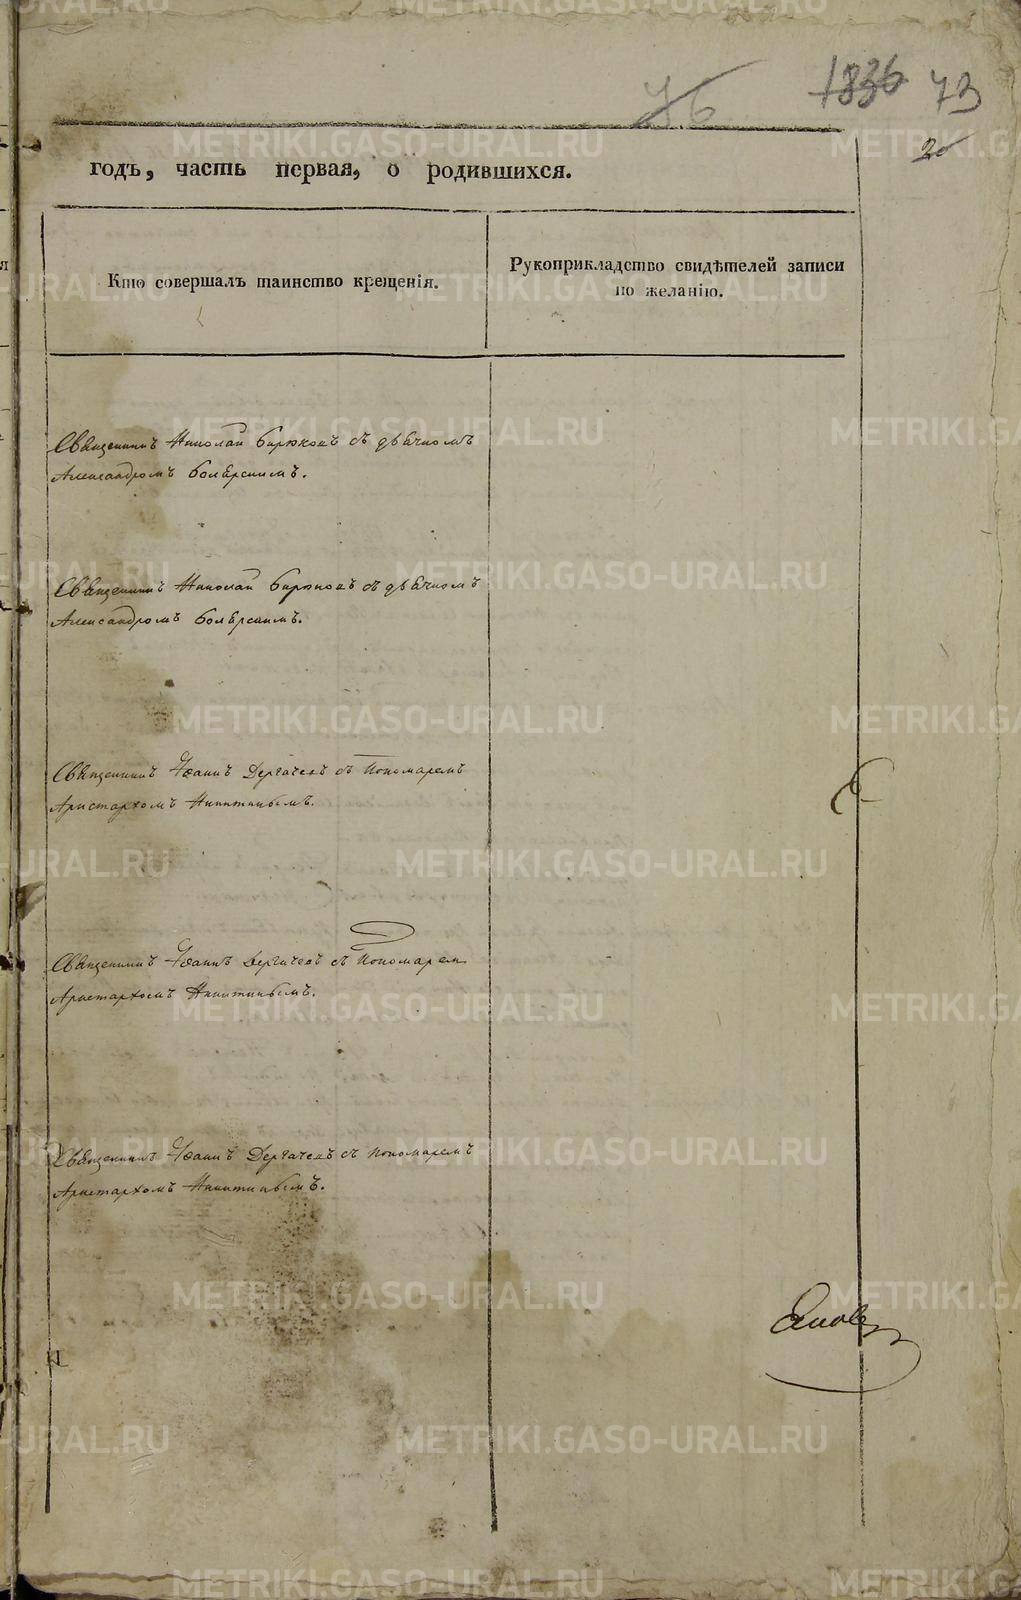 76
1836 73
20
годъ, часть первая, о родившихся.
Кто совершалъ таинство крещенія.
Рукоприкладство свидѣтелей записи
по желанію.
Священникъ Николай Бирюковъ съ дьячкомъ
Александромъ
Священникъ Николай Бирюковъ съ дьячкомъ
Александромъ
Священникъ Іоаннъ Дергачевъ съ Пономаремъ
Аристархомъ Никитинымъ.
Священникъ Іоаннъ Дергачевъ съ Пономаремъ
Аристархомъ Никитинымъ.
Священникъ Іоаннъ Дергачевъ съ пономаремъ
Аристархомъ Никитинымъ.
METRIKI.GASO-URAL.RU